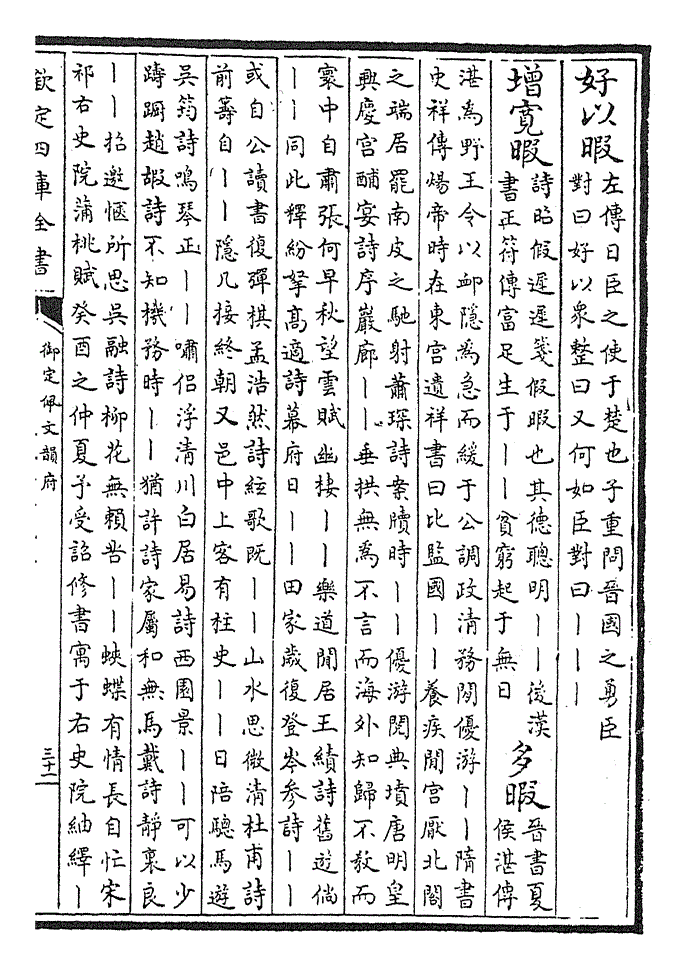 好以暇
左傳日臣之使于楚也子重問晉國之勇臣
對曰好以衆整曰又何如臣對曰丨丨丨
增寛暇
詩昭假遲遲箋假暇也其德聰明丨丨後漢
書王符傳富足生于丨丨貧窮起于無日
多暇
晉書夏
侯湛傳
湛為野王令以䘏隱為急而緩于公調政清務閒優游丨丨隋書
史祥傳煬帝時在東宫遺祥書曰比監國丨丨養疾閒宫厭北閣
之瑞居罷南皮之馳射蕭琛詩案牘時丨丨優游閱典墳唐明皇
興慶宫酺宴詩序巖廊丨丨垂拱無為不言而海外知歸不教而
寰中自肅張何早秋望雲賦幽棲丨丨樂道閒居王績詩舊遊倘
丨丨同此釋紛挐高適詩幕府日丨丨田家歲復登岑參詩丨丨
或自公讀書復彈棋孟浩然詩絃歌既丨丨山水思微清杜甫詩
前籌自丨丨隱几接終朝又邑中上客有柱史丨丨日陪驄馬遊
吳筠詩鳴琴正丨丨嘯侶浮清川白居易詩西園景丨丨可以少
躊躕趙嘏詩不知機務時丨丨猶許詩家屬和無馬戴詩靜裏良
丨丨招邀愜所思吳融詩柳花無賴苦丨丨蛺蝶有情長自忙宋
祁右史院蒲桃賦癸酉之仲夏予受詔修書寓于右史院紬繹丨
欽定四庫全書
御定佩文韻府
三十二